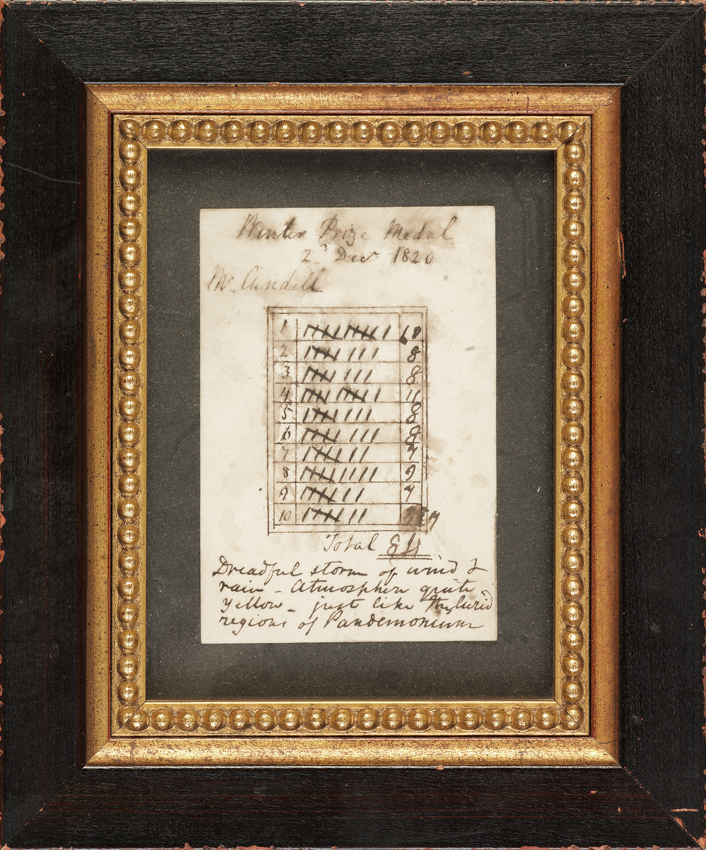 Winter Prize Medal
2d Decr 1820
Mr. Cundell
1 10
2 8
3 8
4 11
5 8
6 8
7 7
8 9
9 7
10 7
Total 84
Dreadful storm of wind &
rain - Atmosphere quite
yellow - just like the lurid
regions of Pandemonium